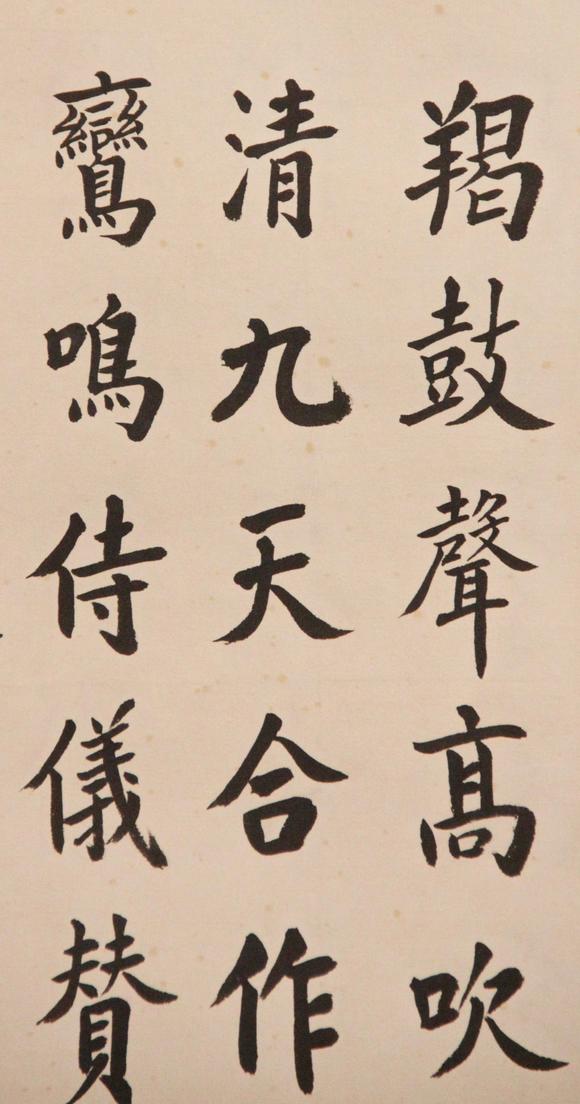 羯鼓聲髙吹
清九天合作
鸞鳴侍儀賛